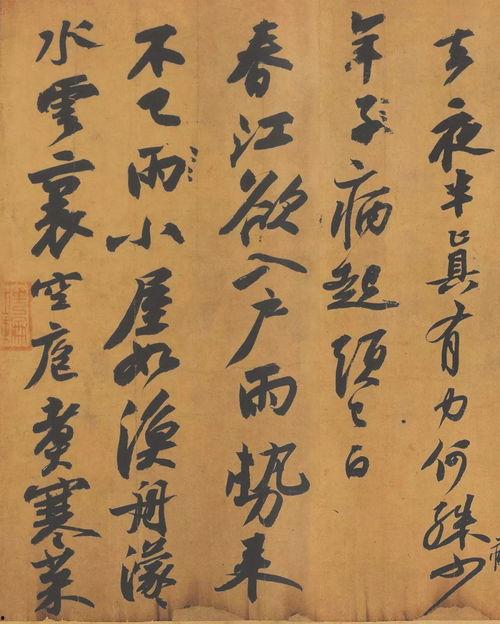 去夜半眞有力何殊少
年子病起頭已白
春江欲入戶雨勢來
不已雨小屋如漁舟濛
水雲裏空庖煮寒菜